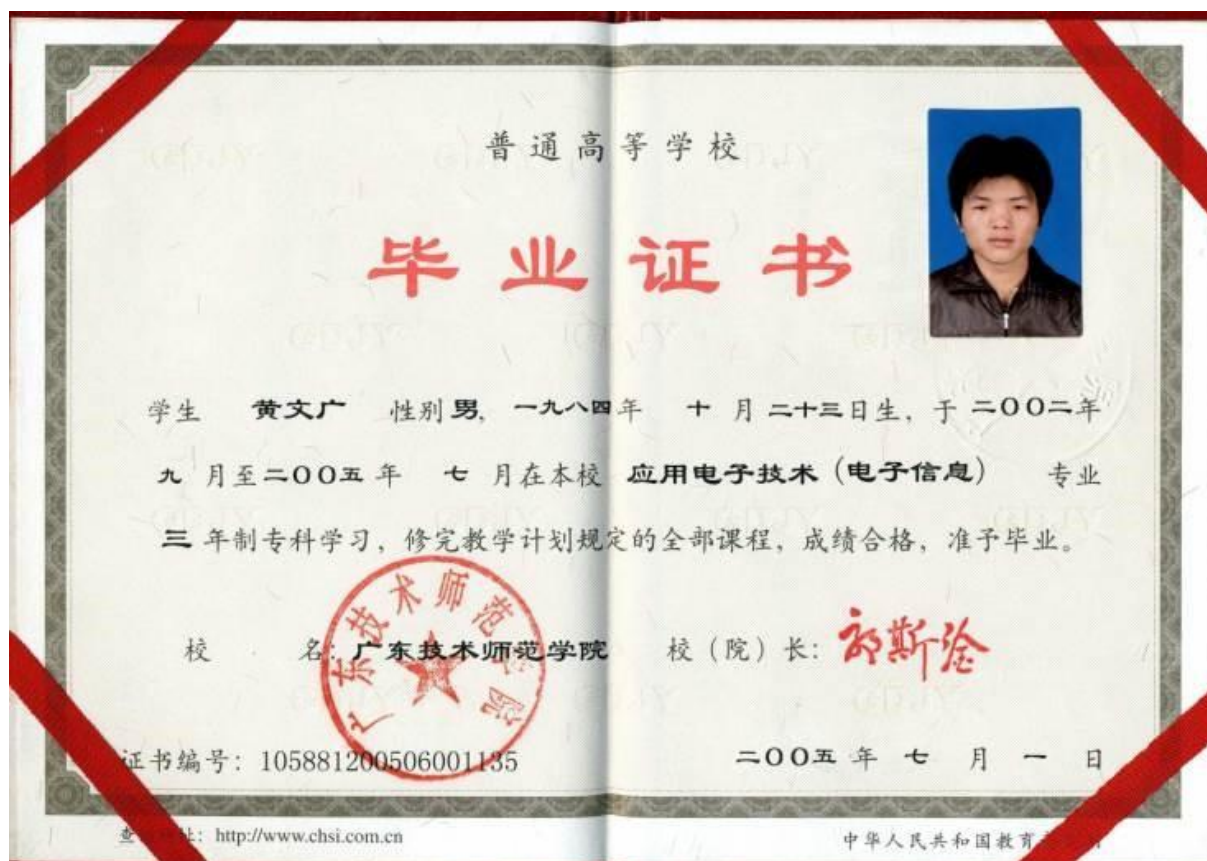 普通高等学校
毕业证书
学生 黄文广 性别 男, 一九八四年 十 月 二十三日生, 于 二〇〇二年
九 月至二〇〇五 年 七 月在本校 应用电子技术（电子信息） 专业
三 年制专科学习, 修完教学计划规定的全部课程, 成绩合格, 准予毕业。
校 名: 广东技术师范学院 校（院）长:
广东技术师范学院
证书编号: 105881200506001135 二〇〇五 年 七 月 一 日
查 址: http://www.chsi.com.cn 中华人民共和国教育